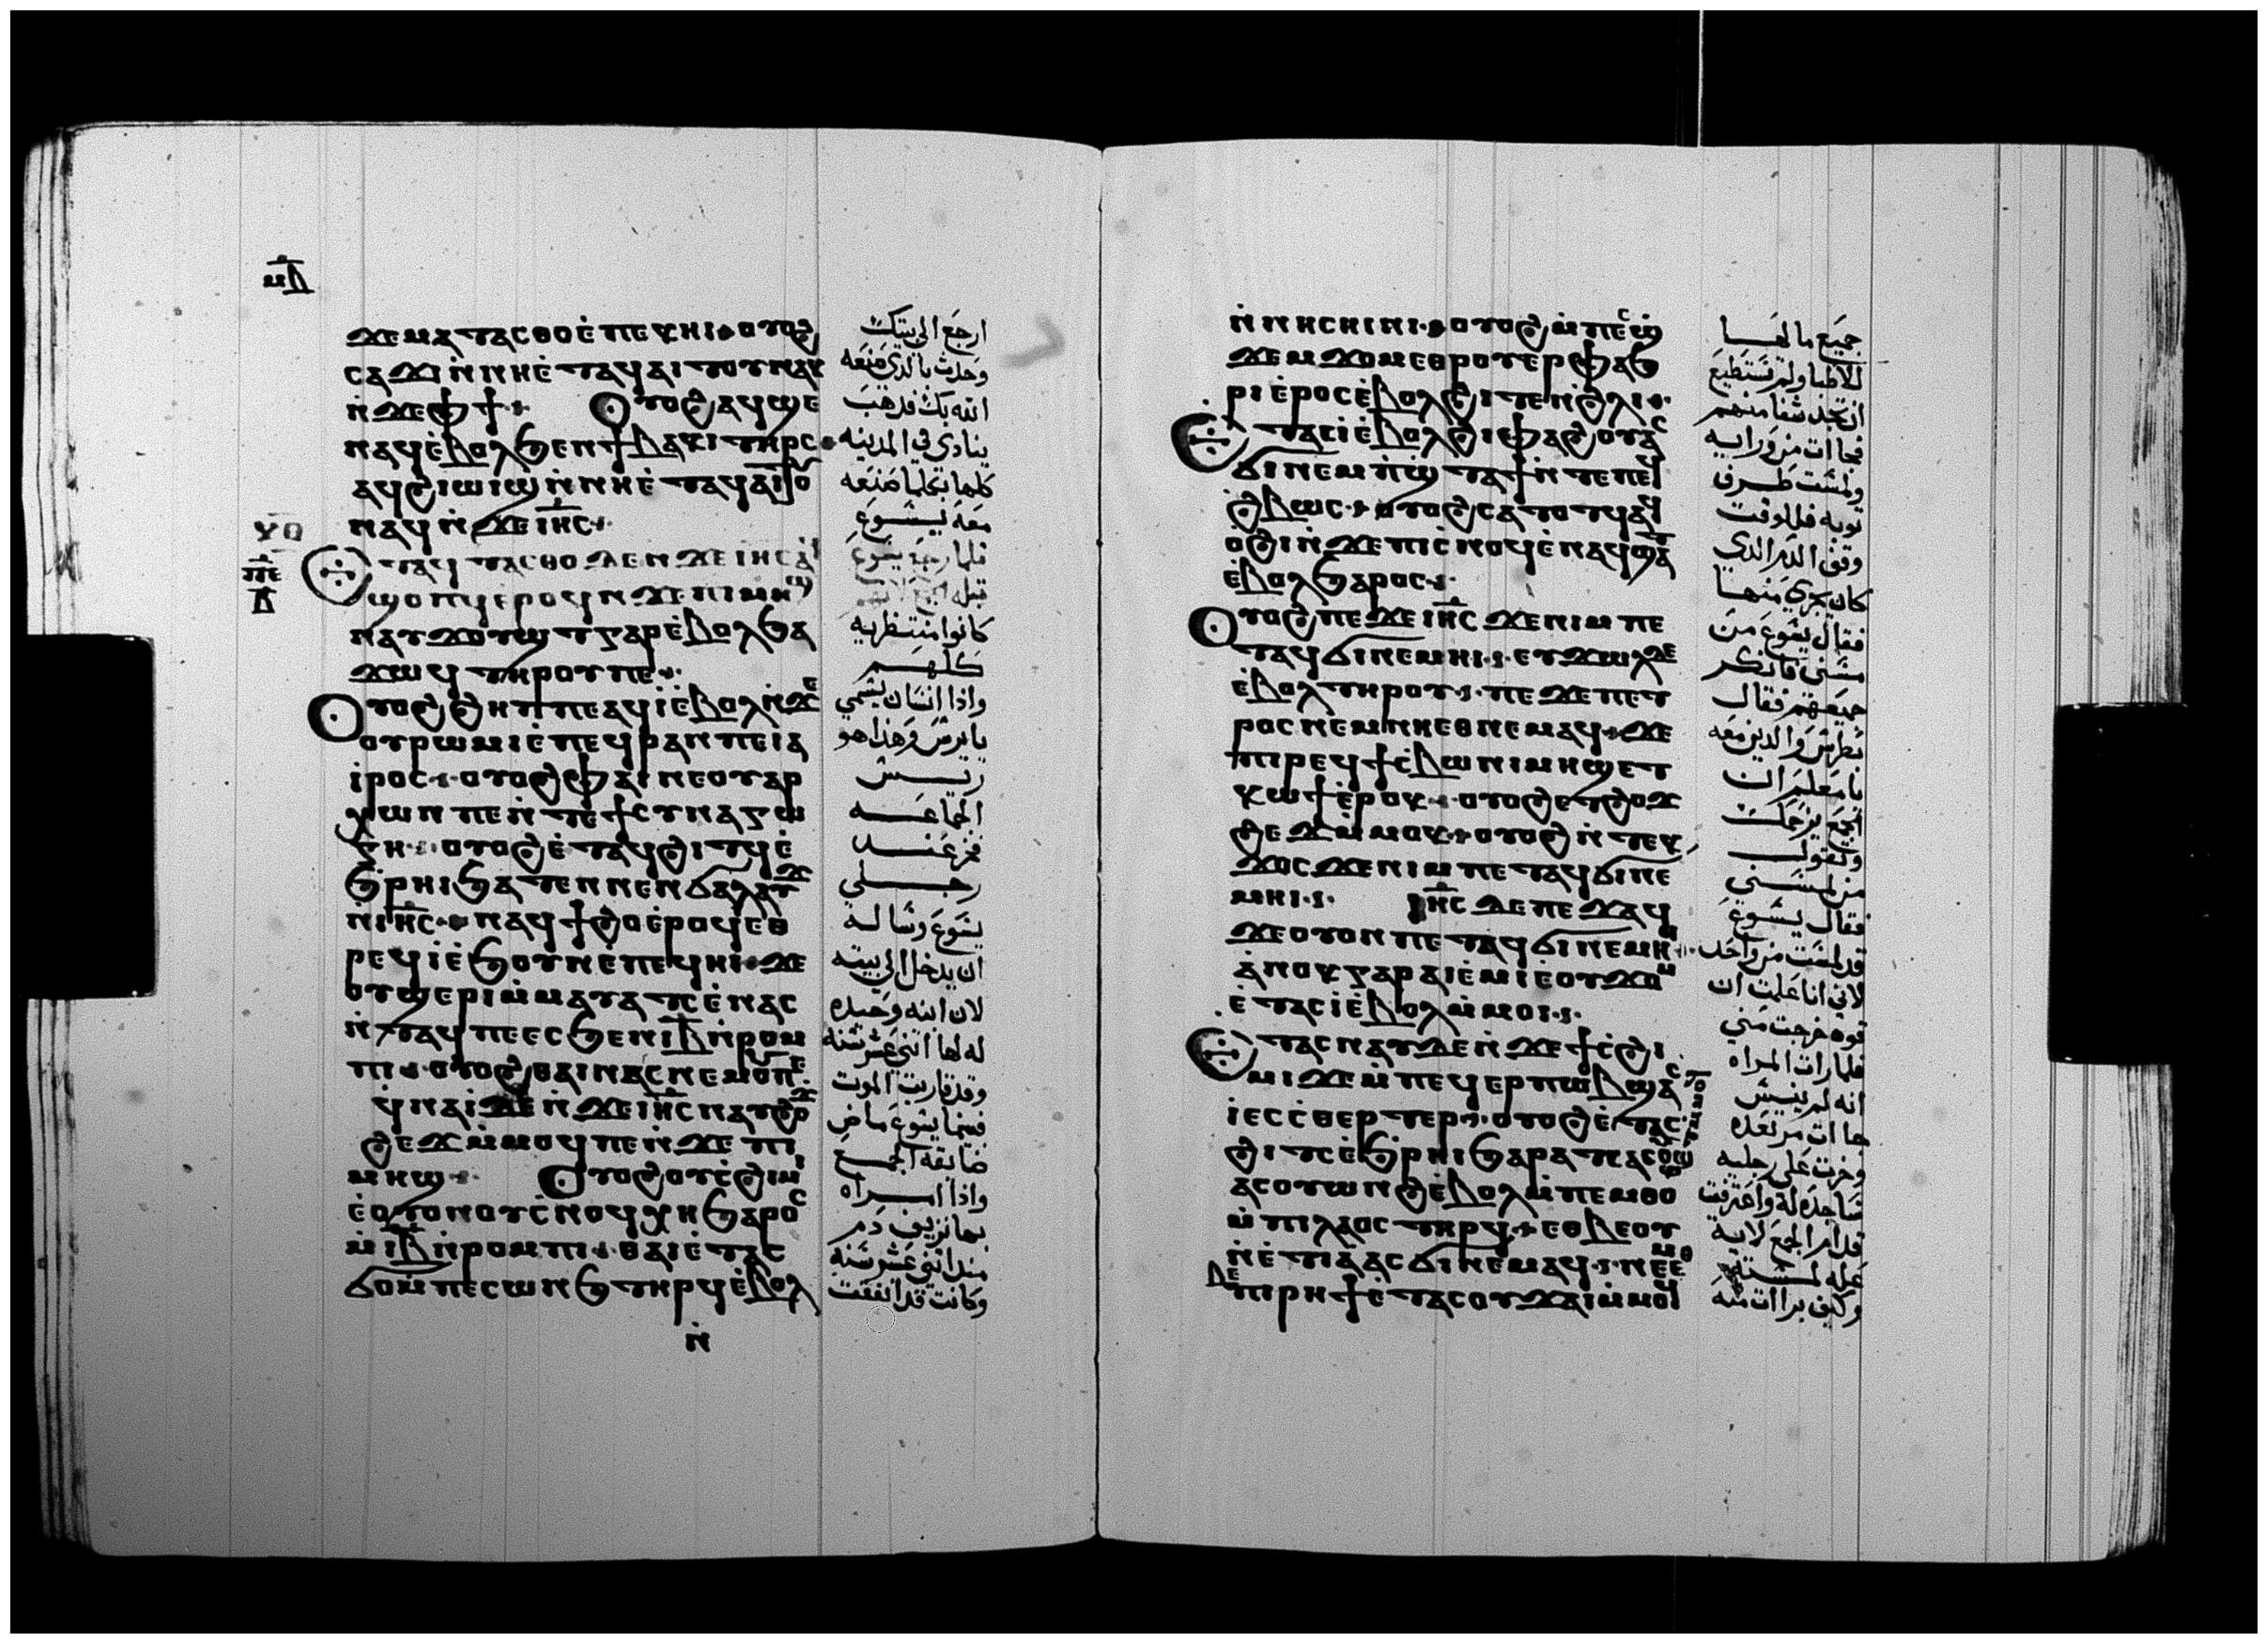 ⲙ̅ⲇ̅
ϫⲉⲙⲁⲧⲁⲥⲑⲟ ⲉ̇ⲡⲉⲕⲏⲓ ⲟⲩⲟϩ
ⲥⲁϫⲓ ⲛ̇ⲛⲏⲉ̇ⲧⲁϥⲁⲓⲧⲟⲩ ⲛⲁⲕ
ⲛ̇ϫⲉⲫϯ Ⲟⲩⲟϩ ⲁϥϣⲉ
ⲛⲁϥ ⲉ̇ⲃⲟⲗϧⲉⲛϯⲃⲁⲕⲓ ⲧⲏⲣⲥ
ⲁϥϩⲓⲱⲓϣ ⲛ̇ⲛⲏⲉ̇ⲧⲁϥⲁⲓⲧⲟⲩ
ⲛⲁϥ ⲛ̇ϫⲉⲓⲏ̅ⲥ̅
ⲟ̅ⲩ̅
ⲡ̅ⲉ̅
ⲇ̅
Ⲉⲧⲁϥⲧⲁⲥⲑⲟ ⲇⲉ ⲛ̇ϫⲉⲓⲏⲥ ⲁϥ
ϣⲟⲡϥ ⲉⲣⲟϥ ⲛ̇ϫⲉⲡⲓⲙⲏϣ
ⲛⲁⲩϫⲟⲩϣⲧ ⲅⲁⲣ ⲉ̇ⲃⲟⲗϧⲁ
ϫⲱϥ ⲧⲏⲣⲟⲩ ⲡⲉ
Ⲟⲩⲟϩ ϩⲏⲡⲡⲉ ⲁϥⲓ̇ ⲉ̇ⲃⲟⲗ ⲛ̇ϫⲉ
ⲟⲩⲣⲱⲙⲓ ⲉ̇ⲡⲉϥⲣⲁⲛ ⲡⲉ ⲓ̇ⲁ
ⲓ̇ⲣⲟⲥ ⲟⲩⲟϩ ⲫⲁⲓ ⲛⲉ ⲟⲩⲁⲣ
ⲭⲱⲛ ⲡⲉ ⲛ̇ⲧⲉϯⲥⲩⲛⲁⲅⲱ
ⲅⲏ ⲟⲩⲟϩ ⲉ̇ⲧⲁϥϩⲓⲧϥ ⲉ̇
ϧⲣⲏⲓ ϧⲁⲧⲉⲛ ⲛⲉⲛϭⲁⲗⲁⲩϫ
ⲛ̇ⲓⲏ̅ⲥ̅ ⲛⲁϥϯϩⲟ ⲉ̇ⲣⲟϥ ⲉⲑ
ⲣⲉϥⲓ̇ ⲉ̇ϧⲟⲩⲛ ⲉⲡⲉϥⲏⲓ ϫⲉ
ⲟⲩϣⲉⲣⲓ ⲙ̇ⲙⲁⲩⲁⲧⲥ ⲉ̇ⲛⲁⲥ
ⲛ̇ⲧⲁϥ ⲡⲉ ⲉⲥϧⲉⲛ ⲓ̅ⲃ̅ ⲛ̇ⲣⲟⲙ
ⲡⲓ ⲟⲩⲟϩ ⲑⲁⲓ ⲛⲁⲥⲛⲉⲙⲟⲩ ⲡⲉ
ϥⲛⲁⲓ̇ ⲇⲉ ⲛ̇ϫⲉⲓⲏ̅ⲥ̅ ⲛⲁⲩϩⲟϫ
ϩⲉϫ ⲙ̇ⲙⲟϥ ⲡⲉ ⲛ̇ϫⲉ ⲡⲓ
ⲙⲏϣ Ⲟⲩⲟϩ ⲟⲩⲥ̇ϩⲓⲙⲓ
ⲉ̇ⲟⲩⲟⲛ ⲟⲩⲥ̇ⲛⲟϥ ⲭⲏ ϧⲁⲣⲟⲥ
ⲛ̇ⲓ̅ⲃ̅ ⲛ̇ⲣⲟⲙⲡⲓ ⲑⲁⲓ ⲉ̇ⲧⲁⲥ
ϭⲟ ⲙ̇ⲡⲉⲥⲱⲛϧ ⲧⲏⲣϥ ⲉ̇ⲃⲟⲗ
ⲛ̇
ارجع الى بيتك
وحدث بالذي صنعه
الله بك فذهب
ينادي في المدينه
كلها بكلما صنعه
معه يسوع
فلما رجع يسوع
قبله الجمع
كانوا منتظريه
كلهم
واذا انسان يسمي
يايرس وهذا هو
ريس
الجماعه
فخر عند
رجلي
يسوع وساله
ان يدخل الى بيته
لان ابنه وحيده
له لها اثني عشر سنه
وقد قاربت الموت
فبينما يسوع ماض
ضايقه الجمع
واذا امراه
بها نزيف دم
منذ اثني عشر سنه
وكانت قد انفقت
ⲛ̇ⲛⲓⲥⲏⲓⲛⲓ ⲟⲩⲟϩ ⲙ̇ⲡⲉⲥϣ
ϫⲉⲙϫⲟⲙ ⲉⲑⲣⲟⲩⲉⲣⲫⲁϧ
ⲣⲓ ⲉ̇ⲣⲟⲥ ⲉ̇ⲃⲟⲗϩⲓⲧⲉⲛ ⲛ̇ϩⲗⲓ
Ⲉⲧⲁⲥⲓ̇ ⲉ̇ⲃⲟⲗϩⲓⲫⲁϩⲟⲩ ⲁⲥ
ϭⲓⲛⲉⲙ ⲡ̇ϣⲧⲁϯ ⲛ̇ⲧⲉⲡⲉϥ
ϩⲃⲱⲥ ⲟⲩⲟϩ ⲥⲁⲧⲟⲧϥ ⲁϥ
ⲟ̇ϩⲓ ⲛ̇ϫⲉⲡⲓⲥ̇ⲛⲟϥ ⲉ̇ⲛⲁϥϣⲁⲧ
ⲉ̇ⲃⲟⲗϧⲁⲣⲟⲥ
Ⲟⲩⲟϩ ⲡⲉϫⲉ ⲓⲏ̅ⲥ̅ ϫⲉ ⲛⲓⲙ ⲡⲉ
ⲧⲁϥϭⲓⲛⲉⲙⲏⲓ ⲉⲩϫⲱⲗ ⲇⲉ
ⲉ̇ⲃⲟⲗ ⲧⲏⲣⲟⲩ ⲡⲉϫⲉ ⲡⲉⲧ
ⲣⲟⲥ ⲛⲉⲙ ⲛⲏⲉⲑⲛⲉⲙⲁϥ ϫⲉ
ⲡⲓⲣⲉϥϯⲥ̇ⲃⲱ ⲛⲓⲙⲏϣ ⲉⲧ
ⲕⲱϯ ⲉ̇ⲣⲟⲕ ⲟⲩⲟϩ ⲉⲧϩⲟϫ
ϩⲉϫ ⲙ̇ⲙⲟⲕ ⲟⲩⲟϩ ⲛ̇ⲧⲉⲕ
ϫⲟⲥ ϫⲉ ⲛⲓⲙ ⲡⲉⲧⲁϥϭⲓⲛⲉ
ⲙⲏⲓ Ⲓⲏ̅ⲥ̅ ⲇⲉ ⲡⲉϫⲁϥ
ϫⲉ ⲟⲩⲟⲛ ⲡⲉⲧⲁϥϭⲓⲛⲉⲙⲏⲓ
ⲁ̇ⲛⲟⲕ ⲅⲁⲣ ⲁⲓⲉ̇ⲙⲓ ⲉⲟⲩϫⲟⲙ
ⲉ̇ⲧⲁⲥⲓ̇ ⲉ̇ⲃⲟⲗ ⲙ̇ⲙⲟⲓ
Ⲉⲧⲁⲥⲛⲁⲩ ⲇⲉ ⲛ̇ϫⲉϯⲥ̇ϩⲓ
ⲙⲓ ϫⲉ ⲙ̇ⲡⲉϥⲉⲣⲡⲱⲃϣ ⲁⲥ
ⲓ̇ ⲉⲥⲥ̇ⲑⲉⲣⲧⲉⲣ ⲟⲩⲟϩ ⲉ̇ⲧⲁⲥ
ϩⲓⲧⲥ ⲉ̇ϧⲣⲏⲓ ϧⲁⲣⲁⲧϥ
ⲁⲥⲟⲩⲱⲛϩ ⲉ̇ⲃⲟⲗ ⲙ̇ⲡⲉⲙⲑⲟ
ⲙ̇ⲡⲓⲗⲁⲟⲥ ⲧⲏⲣϥ ⲉⲑⲃⲉ ⲟⲩ
ⲛ̇ⲉ̇ⲧⲓⲁ ⲁⲥϭⲓⲛⲉⲙⲁϥ ⲛⲉⲙ
ⲡⲓⲣⲏϯ ⲉ̇ⲧⲁⲥⲟⲩϫⲁⲓ ⲙ̇ⲙⲟϥ
جميع مالها
للاطبا ولم تستطيع
ان تجد شفا منهم
فجاات من ورايه
ولمست طرف
ثوبه فللوقت
وقف الدم الذي
كان يجري منها
فقال يسوع من
مسني فانكر
جميعهم فقال
بطرس والذين معه
يا معلم ان
الجمع يزحمك
وتقول
من لمسني
فقال يسوع
قد لمسني واحد
لاني انا علمت ان
قوه خرجت مني
فلما رات المراه
انه لم ينس
جاات مرتعده
وخرت على رجليه
ساجده له واعترفت
قدام الجمع لايه
عله لمسته
وكيف براات منه